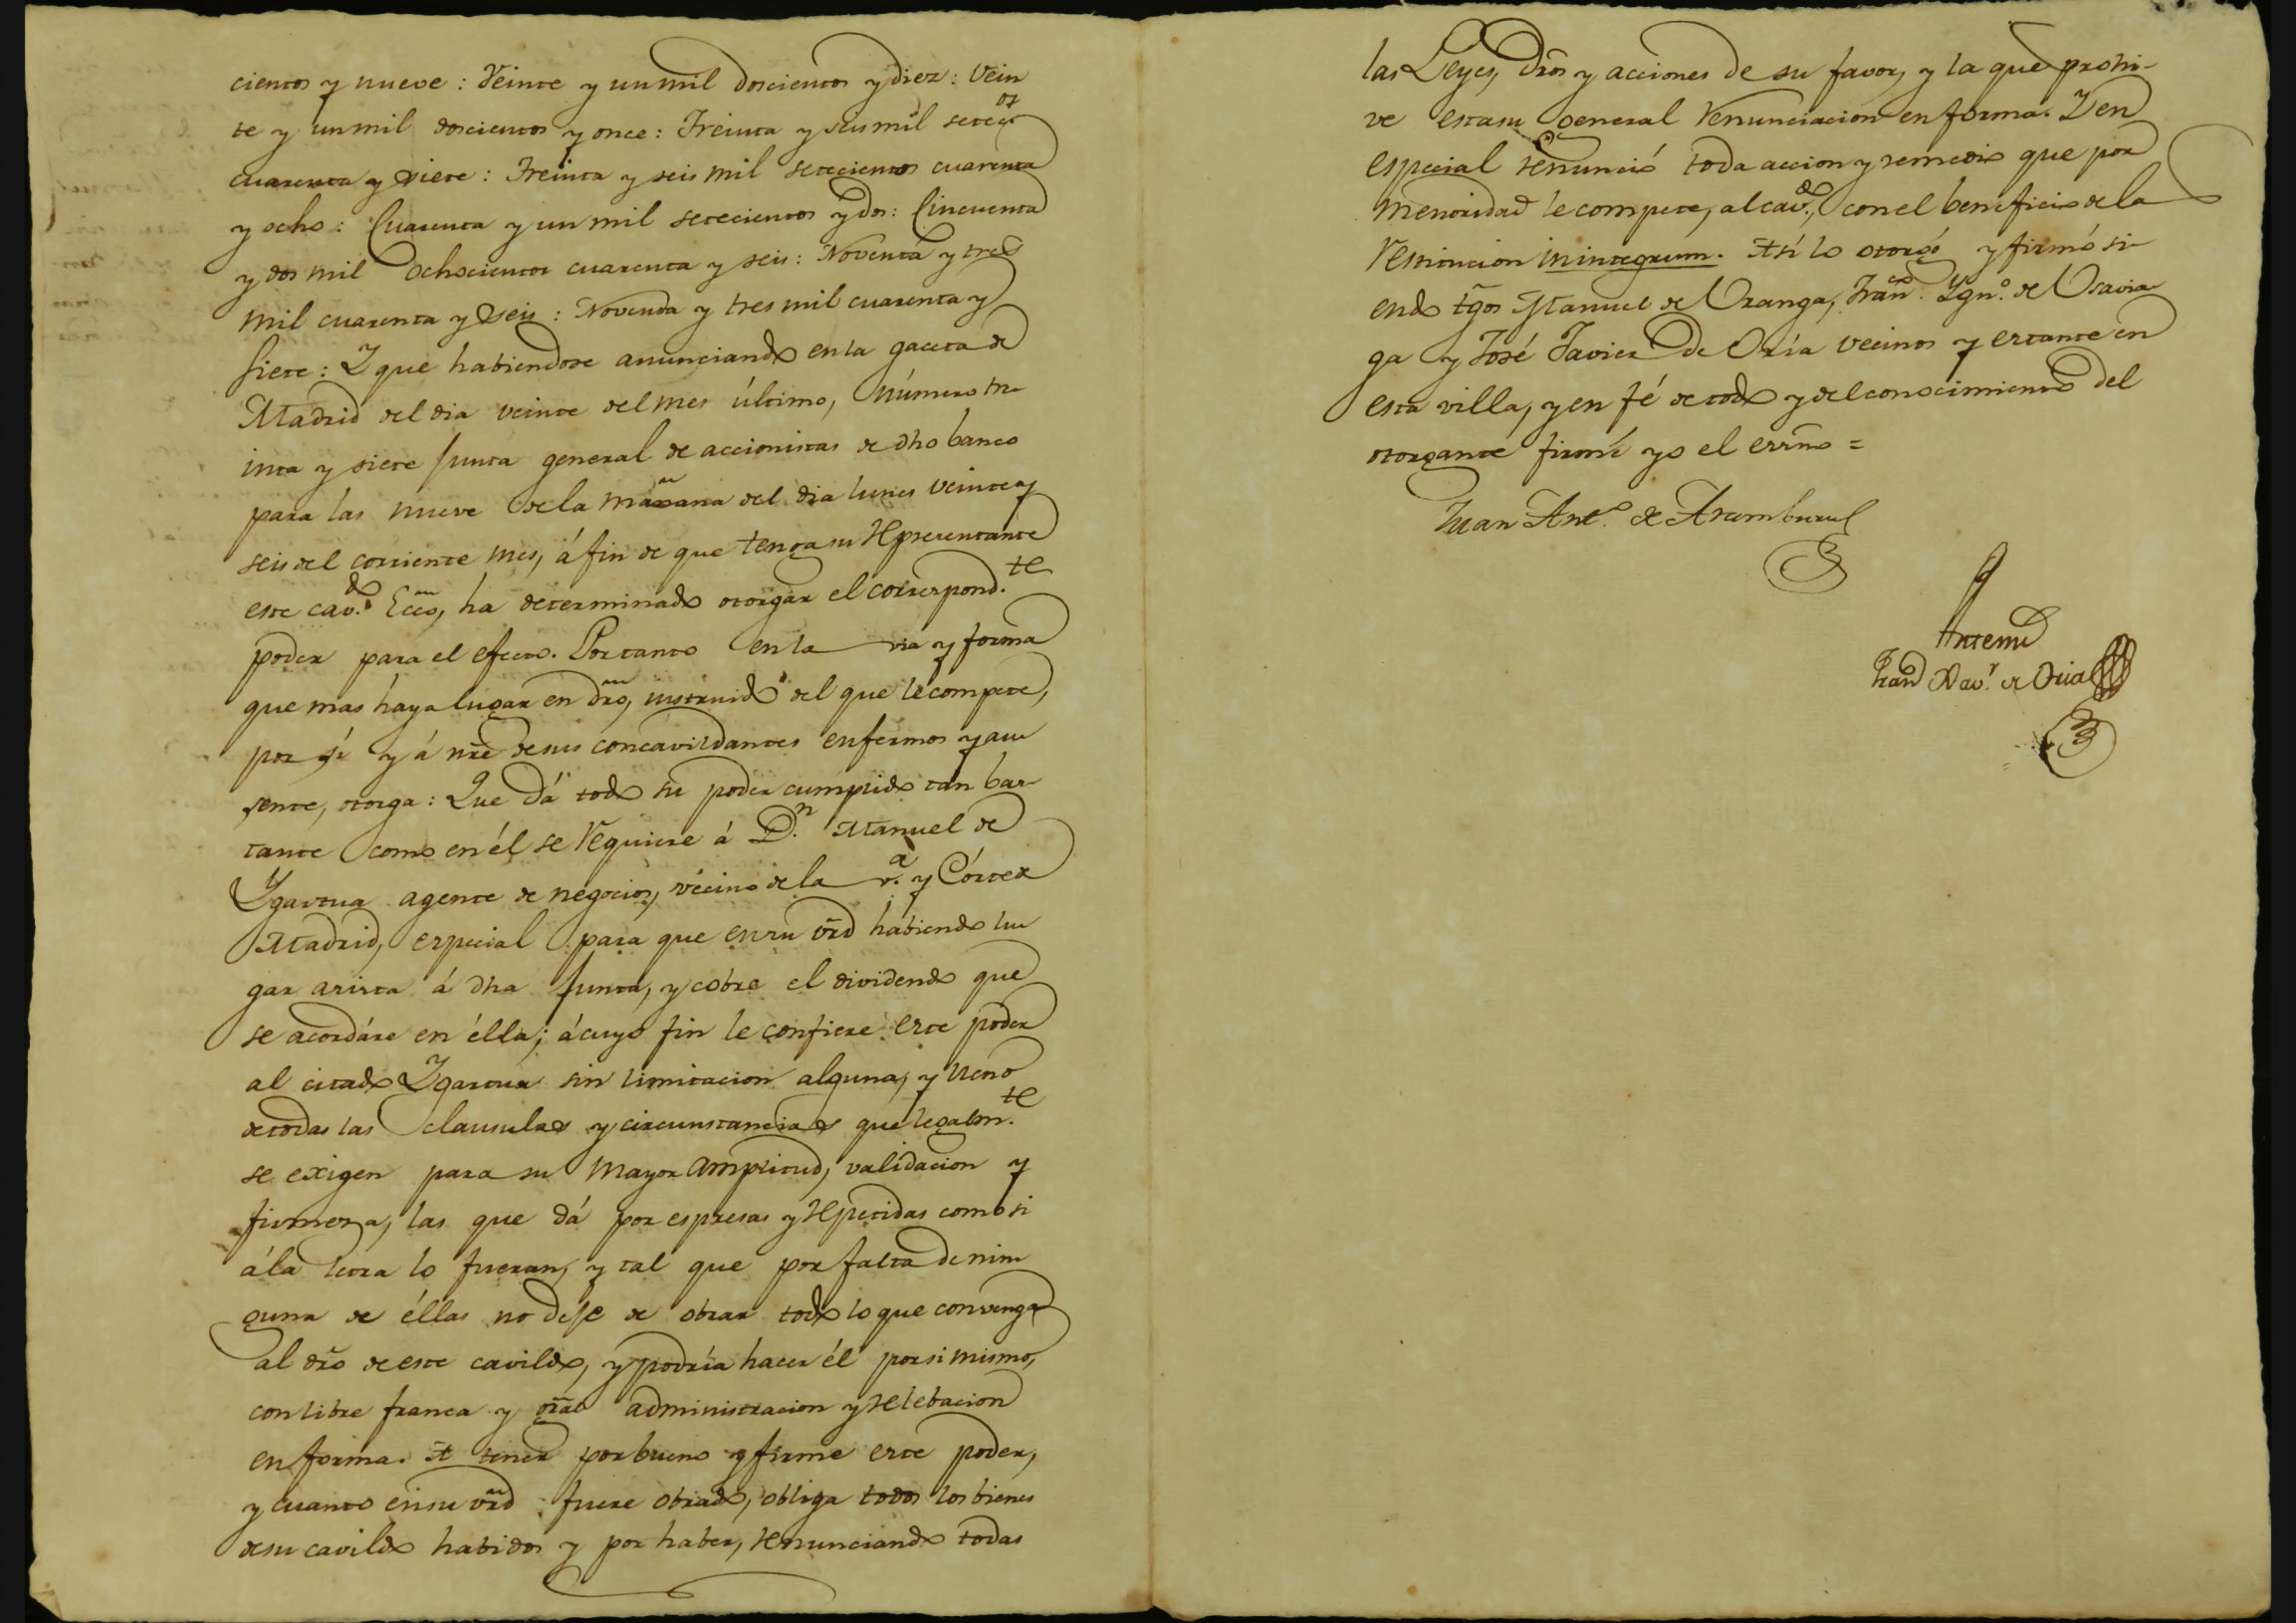 cientos y nueve: Veinte y un mil doscientos y diez: Vein
te y un mil doscientos y once: Treinta y seis mil setec.os
cuarenta y siete: Treinta y seis mil setecientos cuarenta
y ocho: Cuarenta y un mil setecientos y dos: Cincuenta
y dos mil ochocientos cuarenta y seis: Noventa y tres
mil cuarenta y seis: Noventa y tres mil cuarenta y
siete: Y que habiendose anunciando en la gaceta de
Madrid del dia veinte del mes último, número tre
inta y siete Junta general de accionistas de dho banco
para las nueve de la mañana del dia lunes veinte y
seis del corriente mes, á fin de que tenga su Representante
este cav.do Ecco, ha determinado otorgar el correspond.te
poder para el efecto. Por tanto en la via y forma
que mas haya lugar en dro, instruido del que le compete,
por sí y á nre de sus concavildantes enfermos y au
sente, otorga: Que dá todo su poder cumplido tan bas-
tante como en él se requiere á D.n Manuel de
Ygartua agente de negocios, vecino de la v.a y Córte
Madrid, especial para que en su vrd habiendo lu
gar asista á dha Junta, y cobre el dividendo que
se acordáre en élla; á cuyo fin le confiere este poder
al citado Ygartua sin limitacion alguna, y lleno
de todas las clausulas y circunstancias que legalm.te
se exigen para su mayor amplitud, validacion y
firmeza, las que dá por espresas y repetidas como si
á la letra lo fueran, y tal que por falta de nin
guna de éllas no deje de obrar todo lo que convenga
al dro de este cavildo, y podría hacer él por si mismo,
con libre franca y gral administracion y relebacion
en forma. A tener por bueno y firme este poder,
y cuanto en su vrd fuere obrado, obliga todos los bienes
de su cavildo habidos y por haber, renunciando todas
las Leyes, dros y acciones de su favor, y la que prohi-
ve esta su general renunciacion en forma. Y en
especial renunció toda accion y remedio que por
menoridad le compete, al cav.do, con el beneficio de la
restitucion in integrum. Así lo otorgó y firmó si-
endo tgos Manuel de Uranga, Fran.co Ygn.o de Usavia-
ga y José Javier de Oria vecinos y estante en
esta villa, y en fé de todo y del conocimiento del
otorgante firmé yo el essno =
Juan Ant.o de Aramburu
Antemi
Fran Xav.r de Oria